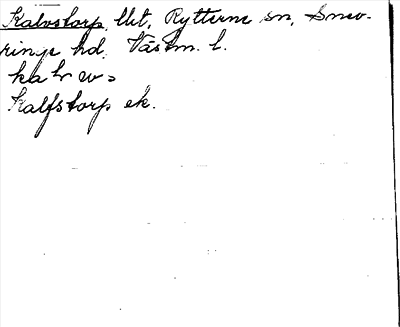 Kalvstorp, lht, Rytterne sn, Snev-
ringe hd, Västm. l.
Kalfstorp ek.